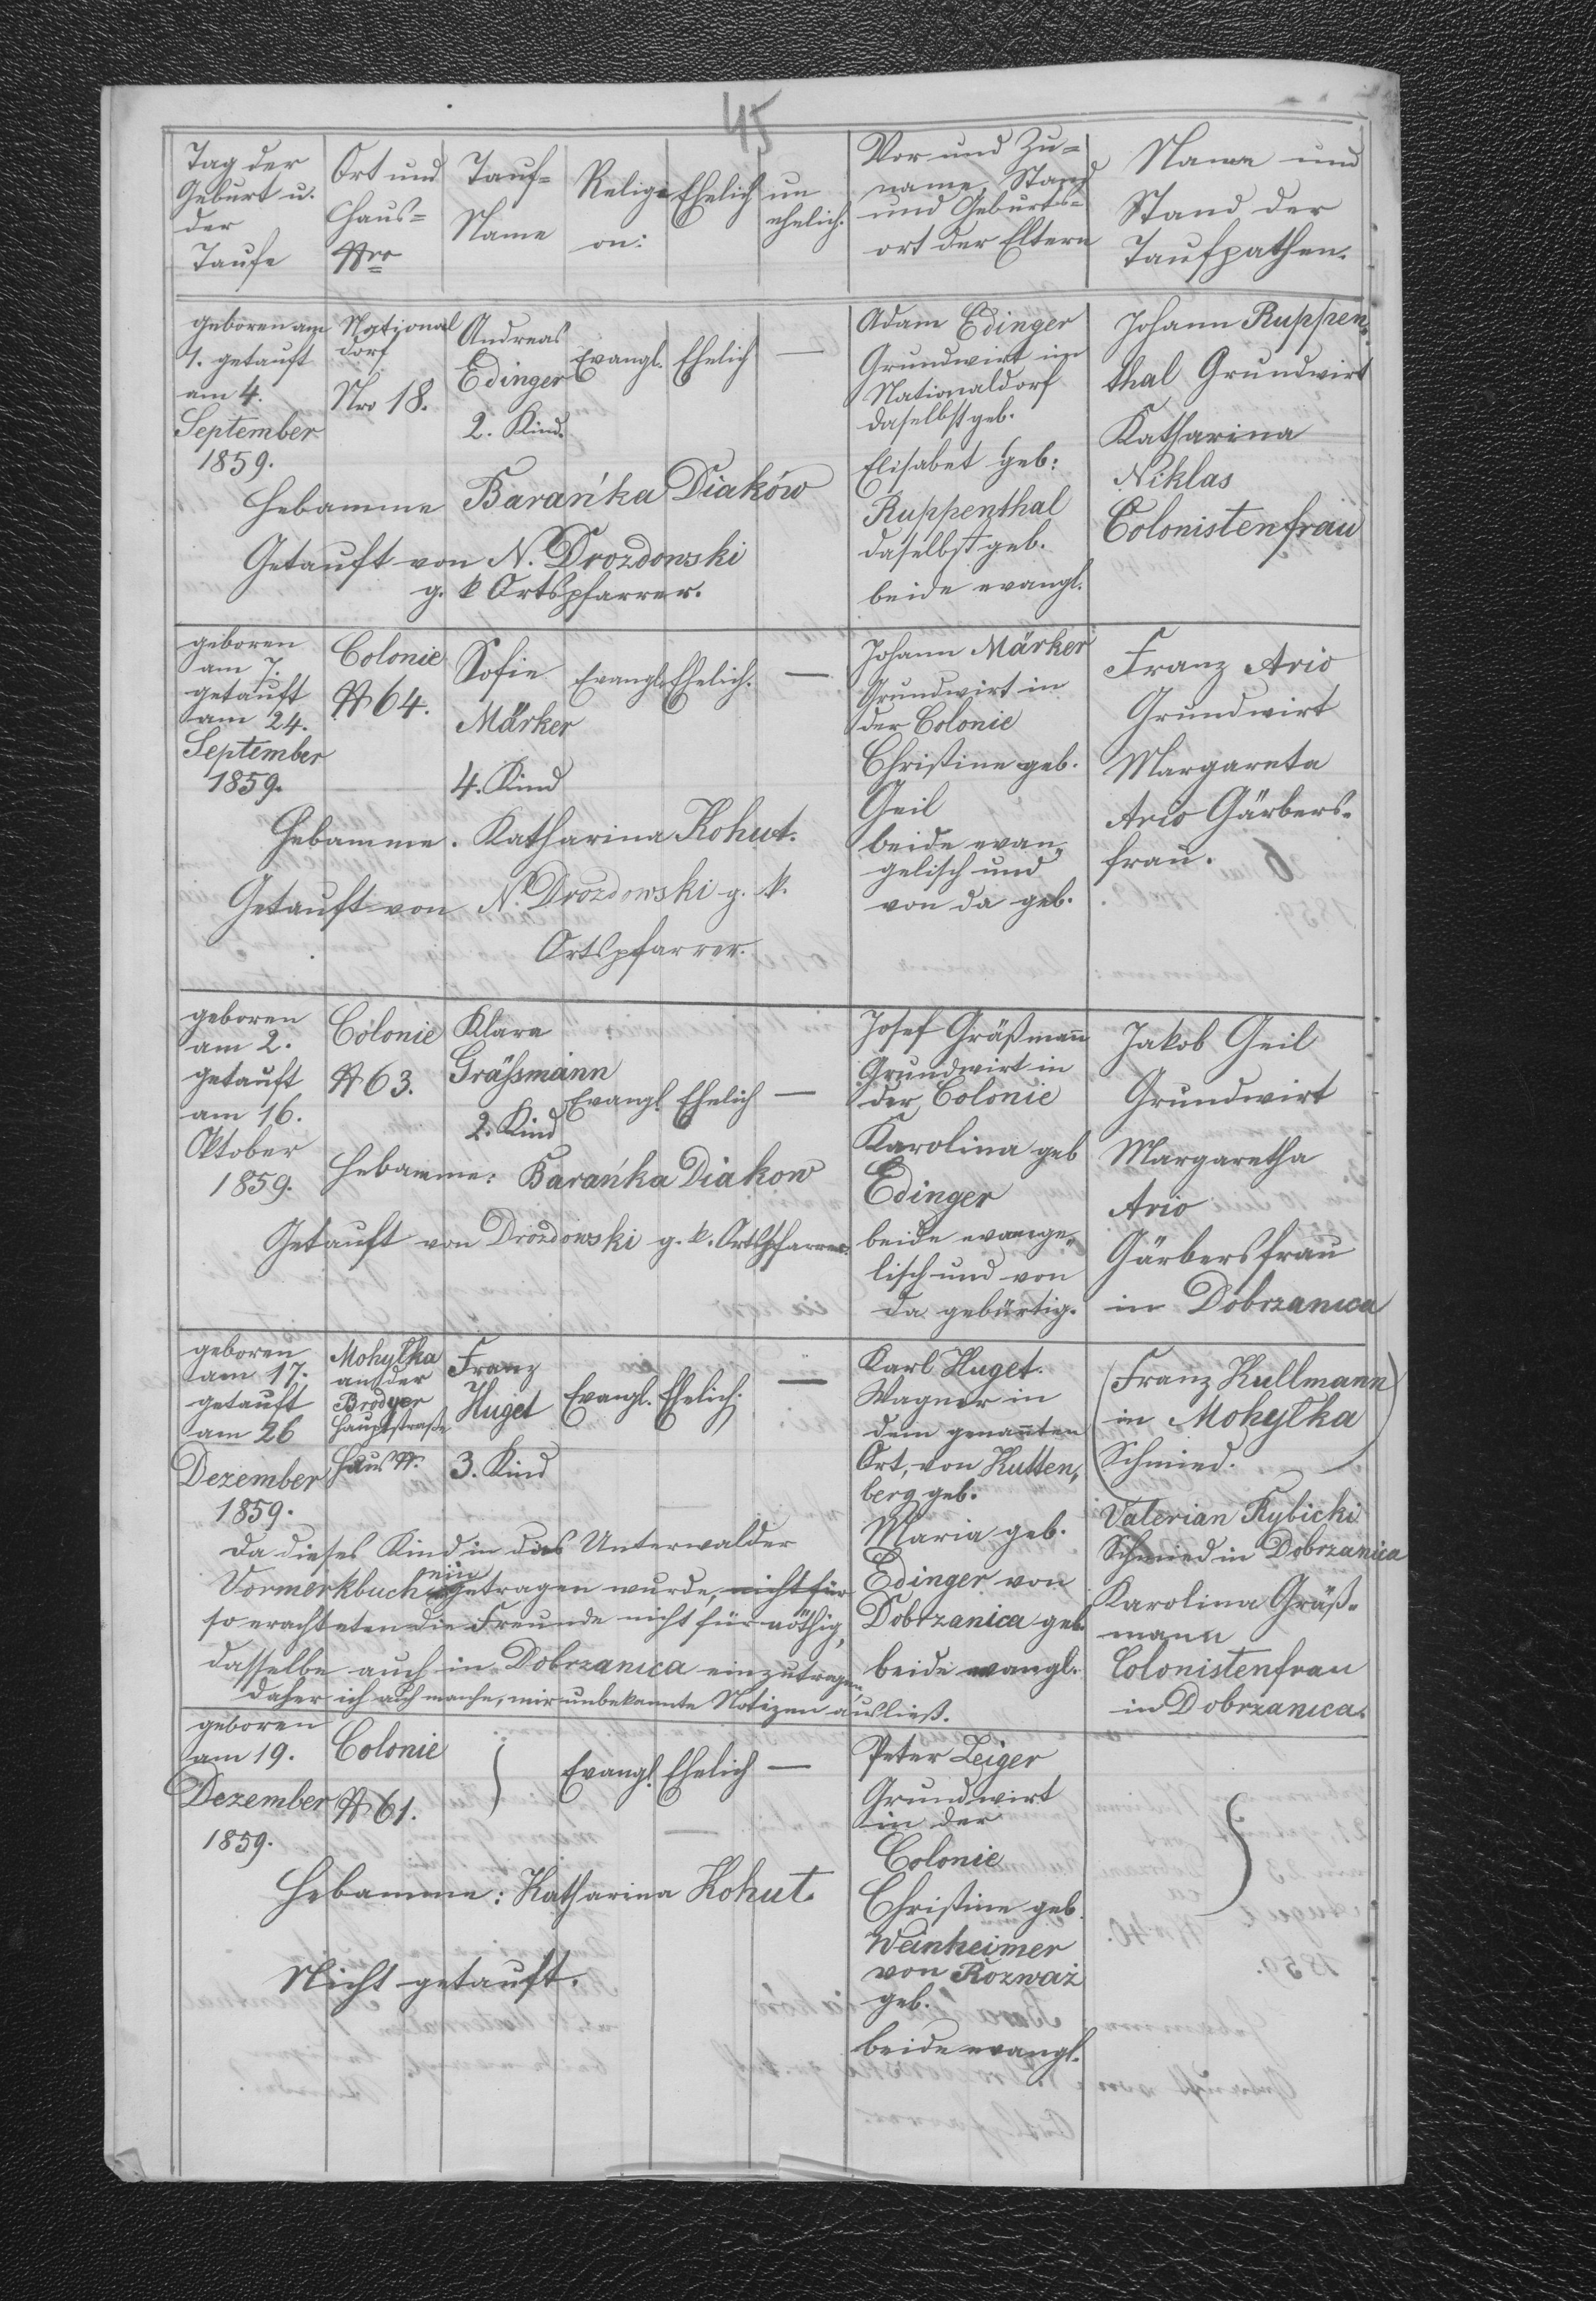 45
Tag der
Geburt u.
der
Taufe
Ort und
Haus=
Nro
Tauf=
Name
Religi
on:
Ehelich
un
ehelich.
Vor und Zu=
name, Stand
und Geburts=
ort der Eltern
Name und
Stand der
Taufpathen.
geboren am
1. getauft
am 4.
September
1859.
National
dorf
Nro 18.
Andreas
Edinger
2. Kind.
Evangl.
Ehelich
—
Adam Edinger
Grundwirt im
Nationaldorf
daselbst geb.
Elisabet geb:
Ruppenthal
daselbst geb.
beide evangl.
Johann Ruppen=
thal Grundwirt
Katharina
Niklas
Colonistenfrau
Hebamme Barańka Diaków
Getauft von N. Drozdowski
g. k Ortspfarrer.
geboren
am 7.
getauft
am 24.
September
1859.
Colonie
N 64.
Sofie
Märker
4. Kind
Evangl.
Ehelich.
—
Johann Märker
Grundwirt in
der Colonie
Christine geb.
Geil
beide evan=
gelisch und
von da geb.
Franz Ario
Grundwirt
Margareta
Ario Gärbers=
frau.
Hebamme. Katharina Kohut.
Getauft von N. Drozdowski g. k.
Ortspfarrer.
geboren
am 2.
getauft
am 16.
Oktober
1859.
Colonie
N 63.
Klara
Gräfsmann
2. Kind
Evangl.
Ehelich
—
Josef Gräßmann
Grundwirt in
der Colonie
Karolina geb
Edinger
beide evange=
lisch und von
da gebürtig.
Jakob Geil
Grundwirt
Margaretha
Ario
Gärbersfrau
in Dobrzanica
Hebamme: Barańka Diakow
Getauft von Drozdowski g. k. Ortspfarrer.
geboren
am 17.
getauft
am 26
Dezember
1859.
Mohyłka
an der
Brodyer
Hauptstraße
Haus N.
Franz
Huget
3. Kind
Evangl.
Ehelich.
—
Karl Huget.
Wagner in
dem genannten
Ort, von Kutten,
berg geb.
Maria geb.
Edinger von
Dobrzanica geb.
beide evangl.
(Franz Kullmann
in Mohyłka
Schmied.)
Valerian Rybicki
Schmied in Dobrzanica
Karolina Gräß=
mann
Colonistenfrau
in Dobrzanica.
Da dieses Kind in das Unterwalder
Vormerkbuch eingetragen wurde, nicht für
so erachteten die Freunde nicht für nöthig,
dasselbe auch in Dobrzanica einzutragen,
daher ich auch manche, mir unbekannte Notizen ausließ.
geboren
am 19.
Dezember
1859.
Colonie
N 61.
Evangl.
Ehelich
—
Peter Zeiger
Grundwirt
in der
Colonie
Christine geb.
Weinheimer
von Rozważ
geb.
beide evangl.
Hebamme: Katharina Kohut.
Nicht getauft.